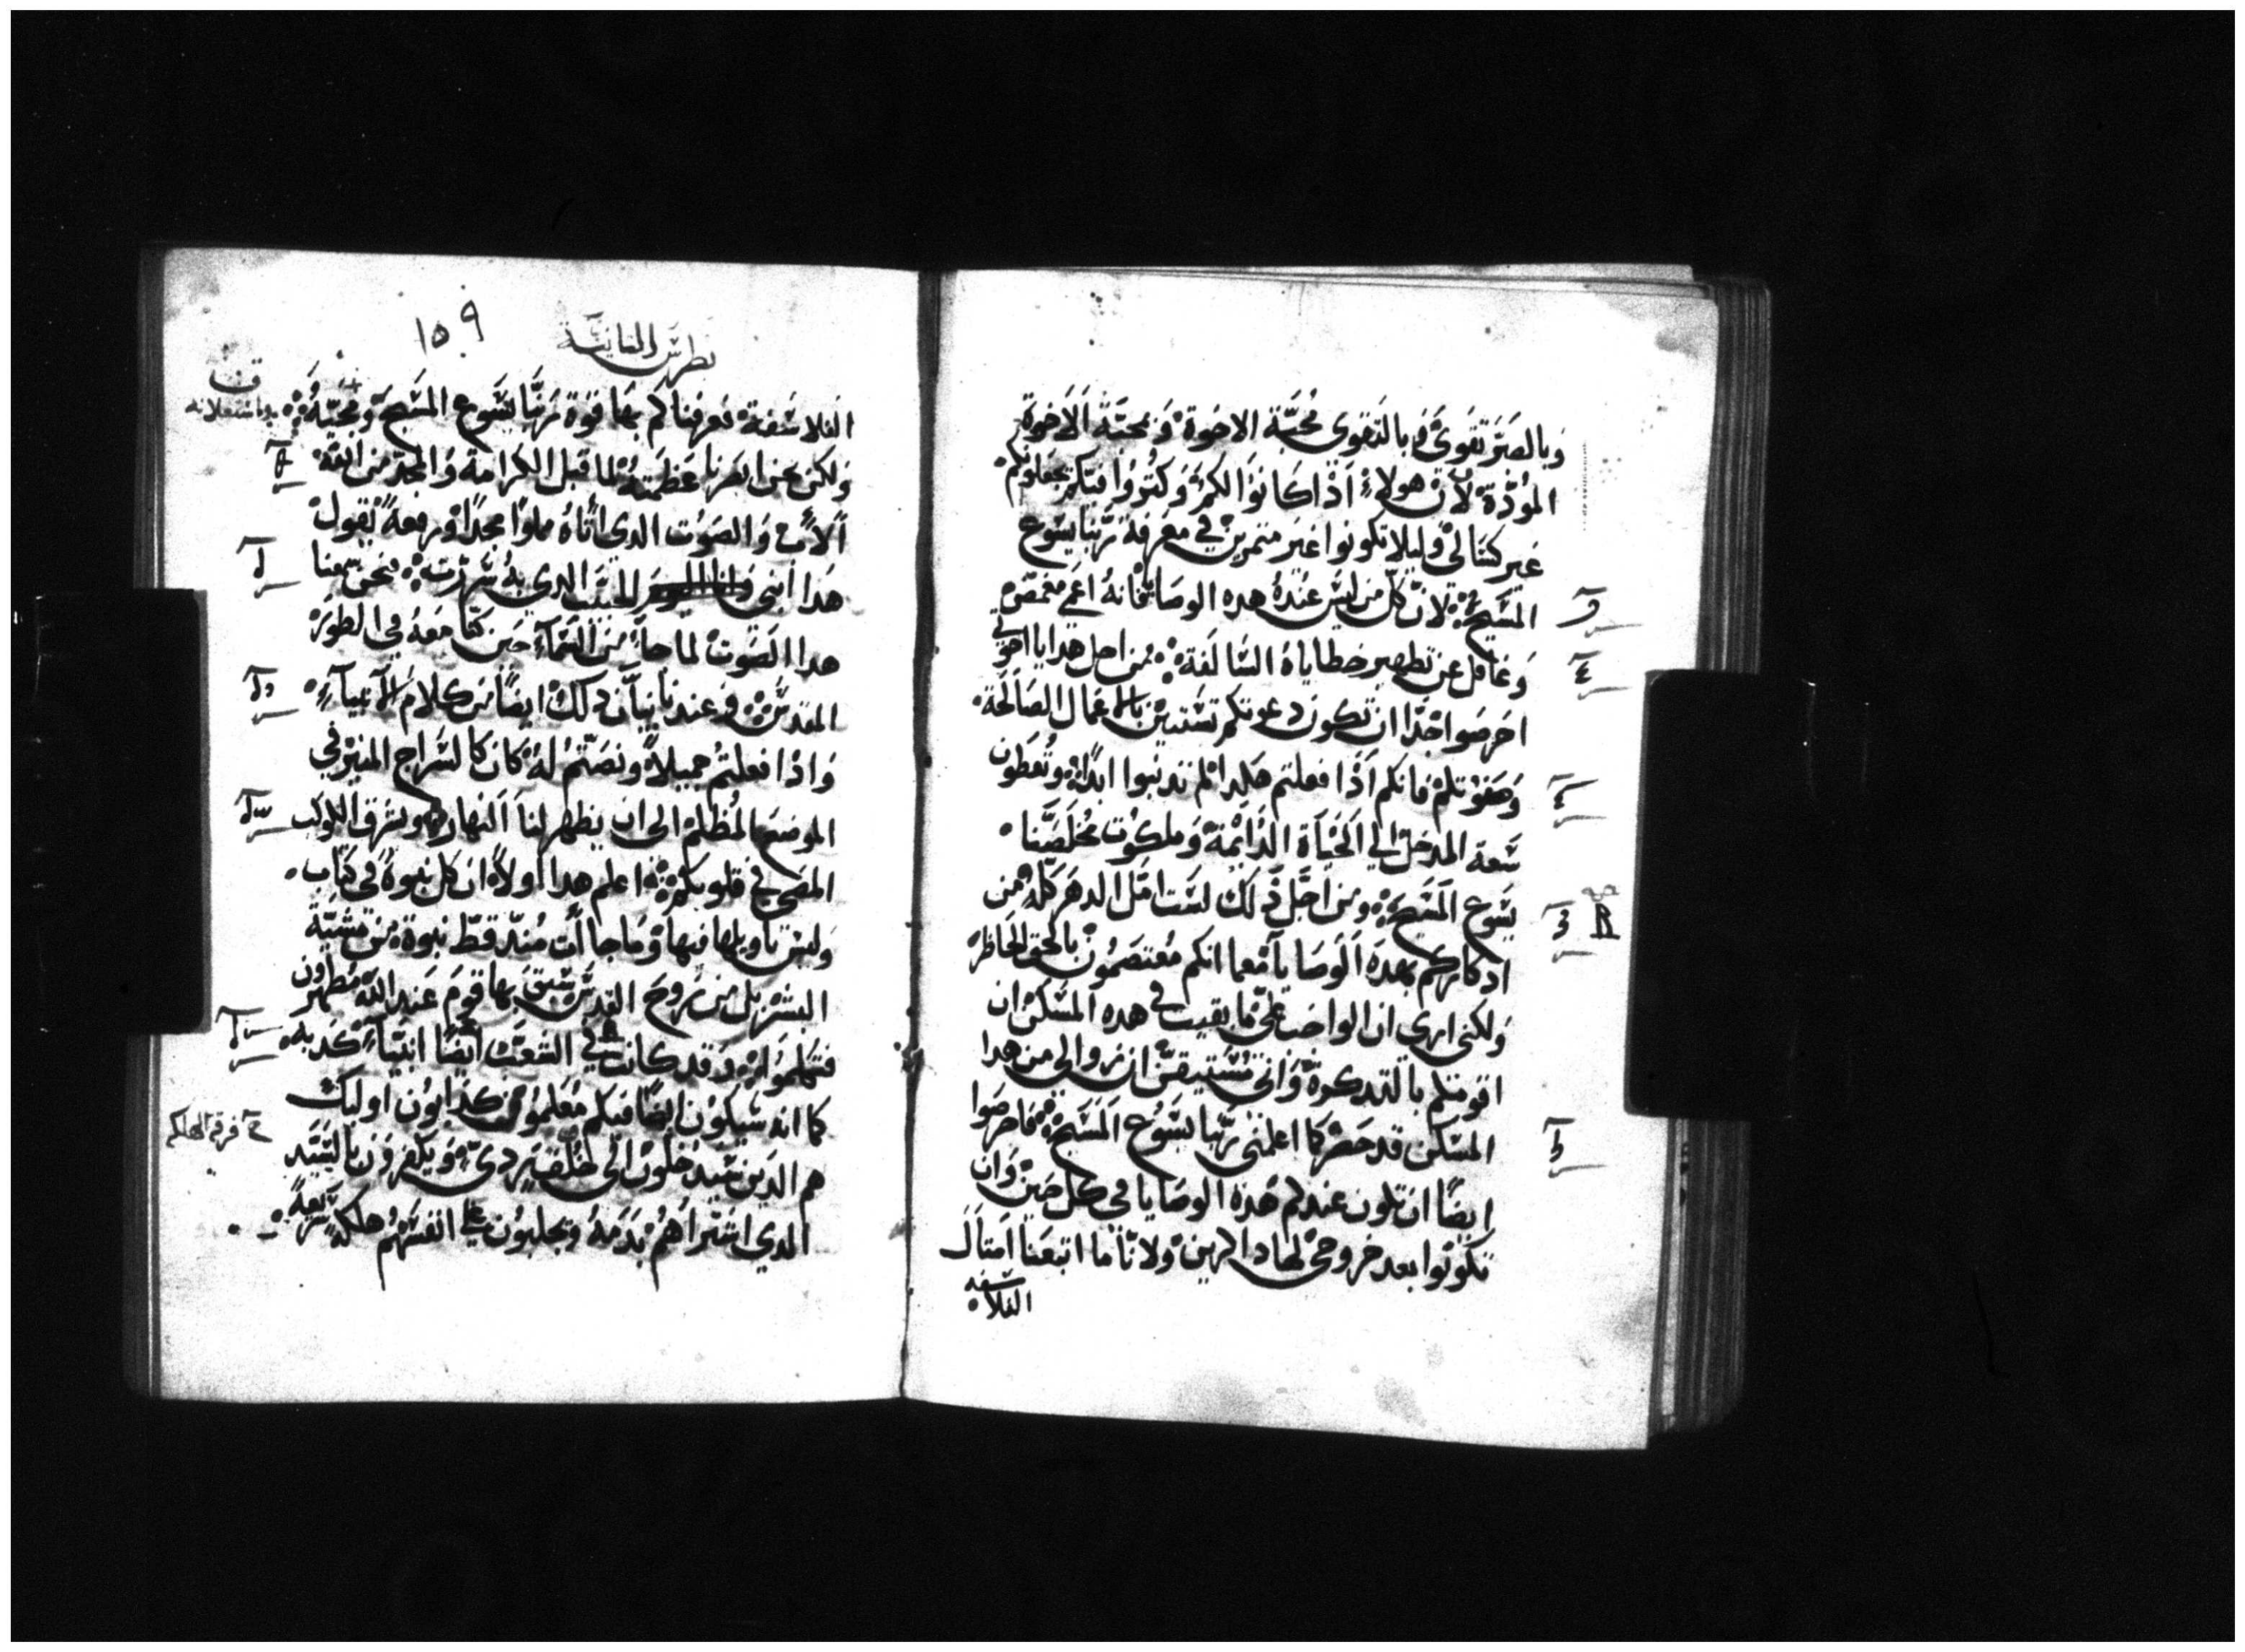 وبالصبر تقوي وبالتقوى محبة الاخوة وبمحبة الاخوة
المودة لان هولاء اذا كانوا لكم وكتروا فيكم يجعلونكم
غير كسالى وليلا تكونوا غير متمرين في معرفة ربنا يسوع
المسيح لان كل من ليس عنده هده الوصايا فانه اعمى مغمض
وغافل عن تطهير خطاياه السالفة من اجل هدا يا اخوتي
احرصوا جدا ان تكون دعوتكم تستبين بالاعمال الصالحة
وصفوتكم فانكم اذا فعلتم هكدا لم تدنبوا ابدا وتعطون
سعة المدخل الي الحياة الدايمة وملكوت مخلصنا
يسوع المسيح ومن اجل ذلك لست امل الدهر كله من
ادكاركم بهده الوصايا معما انكم معتصمون بالحق الحاظر
ولكني ارى ان الواجب علي ما بقيت في هده المسكن ان
اقومكم بالتدكرة واني مستيقن ان زوالي من هدا
المسكن قد حضر كما اعلمني ربنا يسوع المسيح فاحرصوا
ايضا ان تكون عندكم هذه الوصايا في كل حين وان
تكونوا بعد خروجي لها داكرين ولاننا ما اتبعنا امتال
الفلاسفه
بطرس التانية
١٥٩
الفلاسفة فعرفناكم بها قوة ربنا يسوع المسيح ومجيه
ولكن نحن ابصرنا عظمته لما قبل الكرامة والمجد من الله
الاب والصوت الدي اتاه مملوا مجدا ورفعة يقول
هدا ابني الحبيب الدي به سررت فنحن سمعنا
هدا الصوت لما جا من السماء حين كنا معه في الطور
المقدس وعندنا بيان دلك ايضا من كلام الانبياء
واذا فعلتم جميلا ونصتم له كان كالسراج المنير في
الموضع المظلم الى ان يظهر لنا النهار ويشرق الكوكب
المضي في قلوبكم اعلم هدا اولا ان كل نبوة في كتاب
وليس تاويلها فيها وما جاأت مند قط نبوة من مشية
البشر بل من روح القدس سبق بها قوم عند الله مطهرون
فتكلموا وقد كانت في الشعب ايضا انبياء كدبه
كما انه سيكون ايضا فيكم معلمون كدابون اوليك
هم الدين سيدخلون الى خلف ردي ويكفرون بالسيد
الدي اشتراهم بدمه ويجلبون علي انفسهم هلكة سريعة